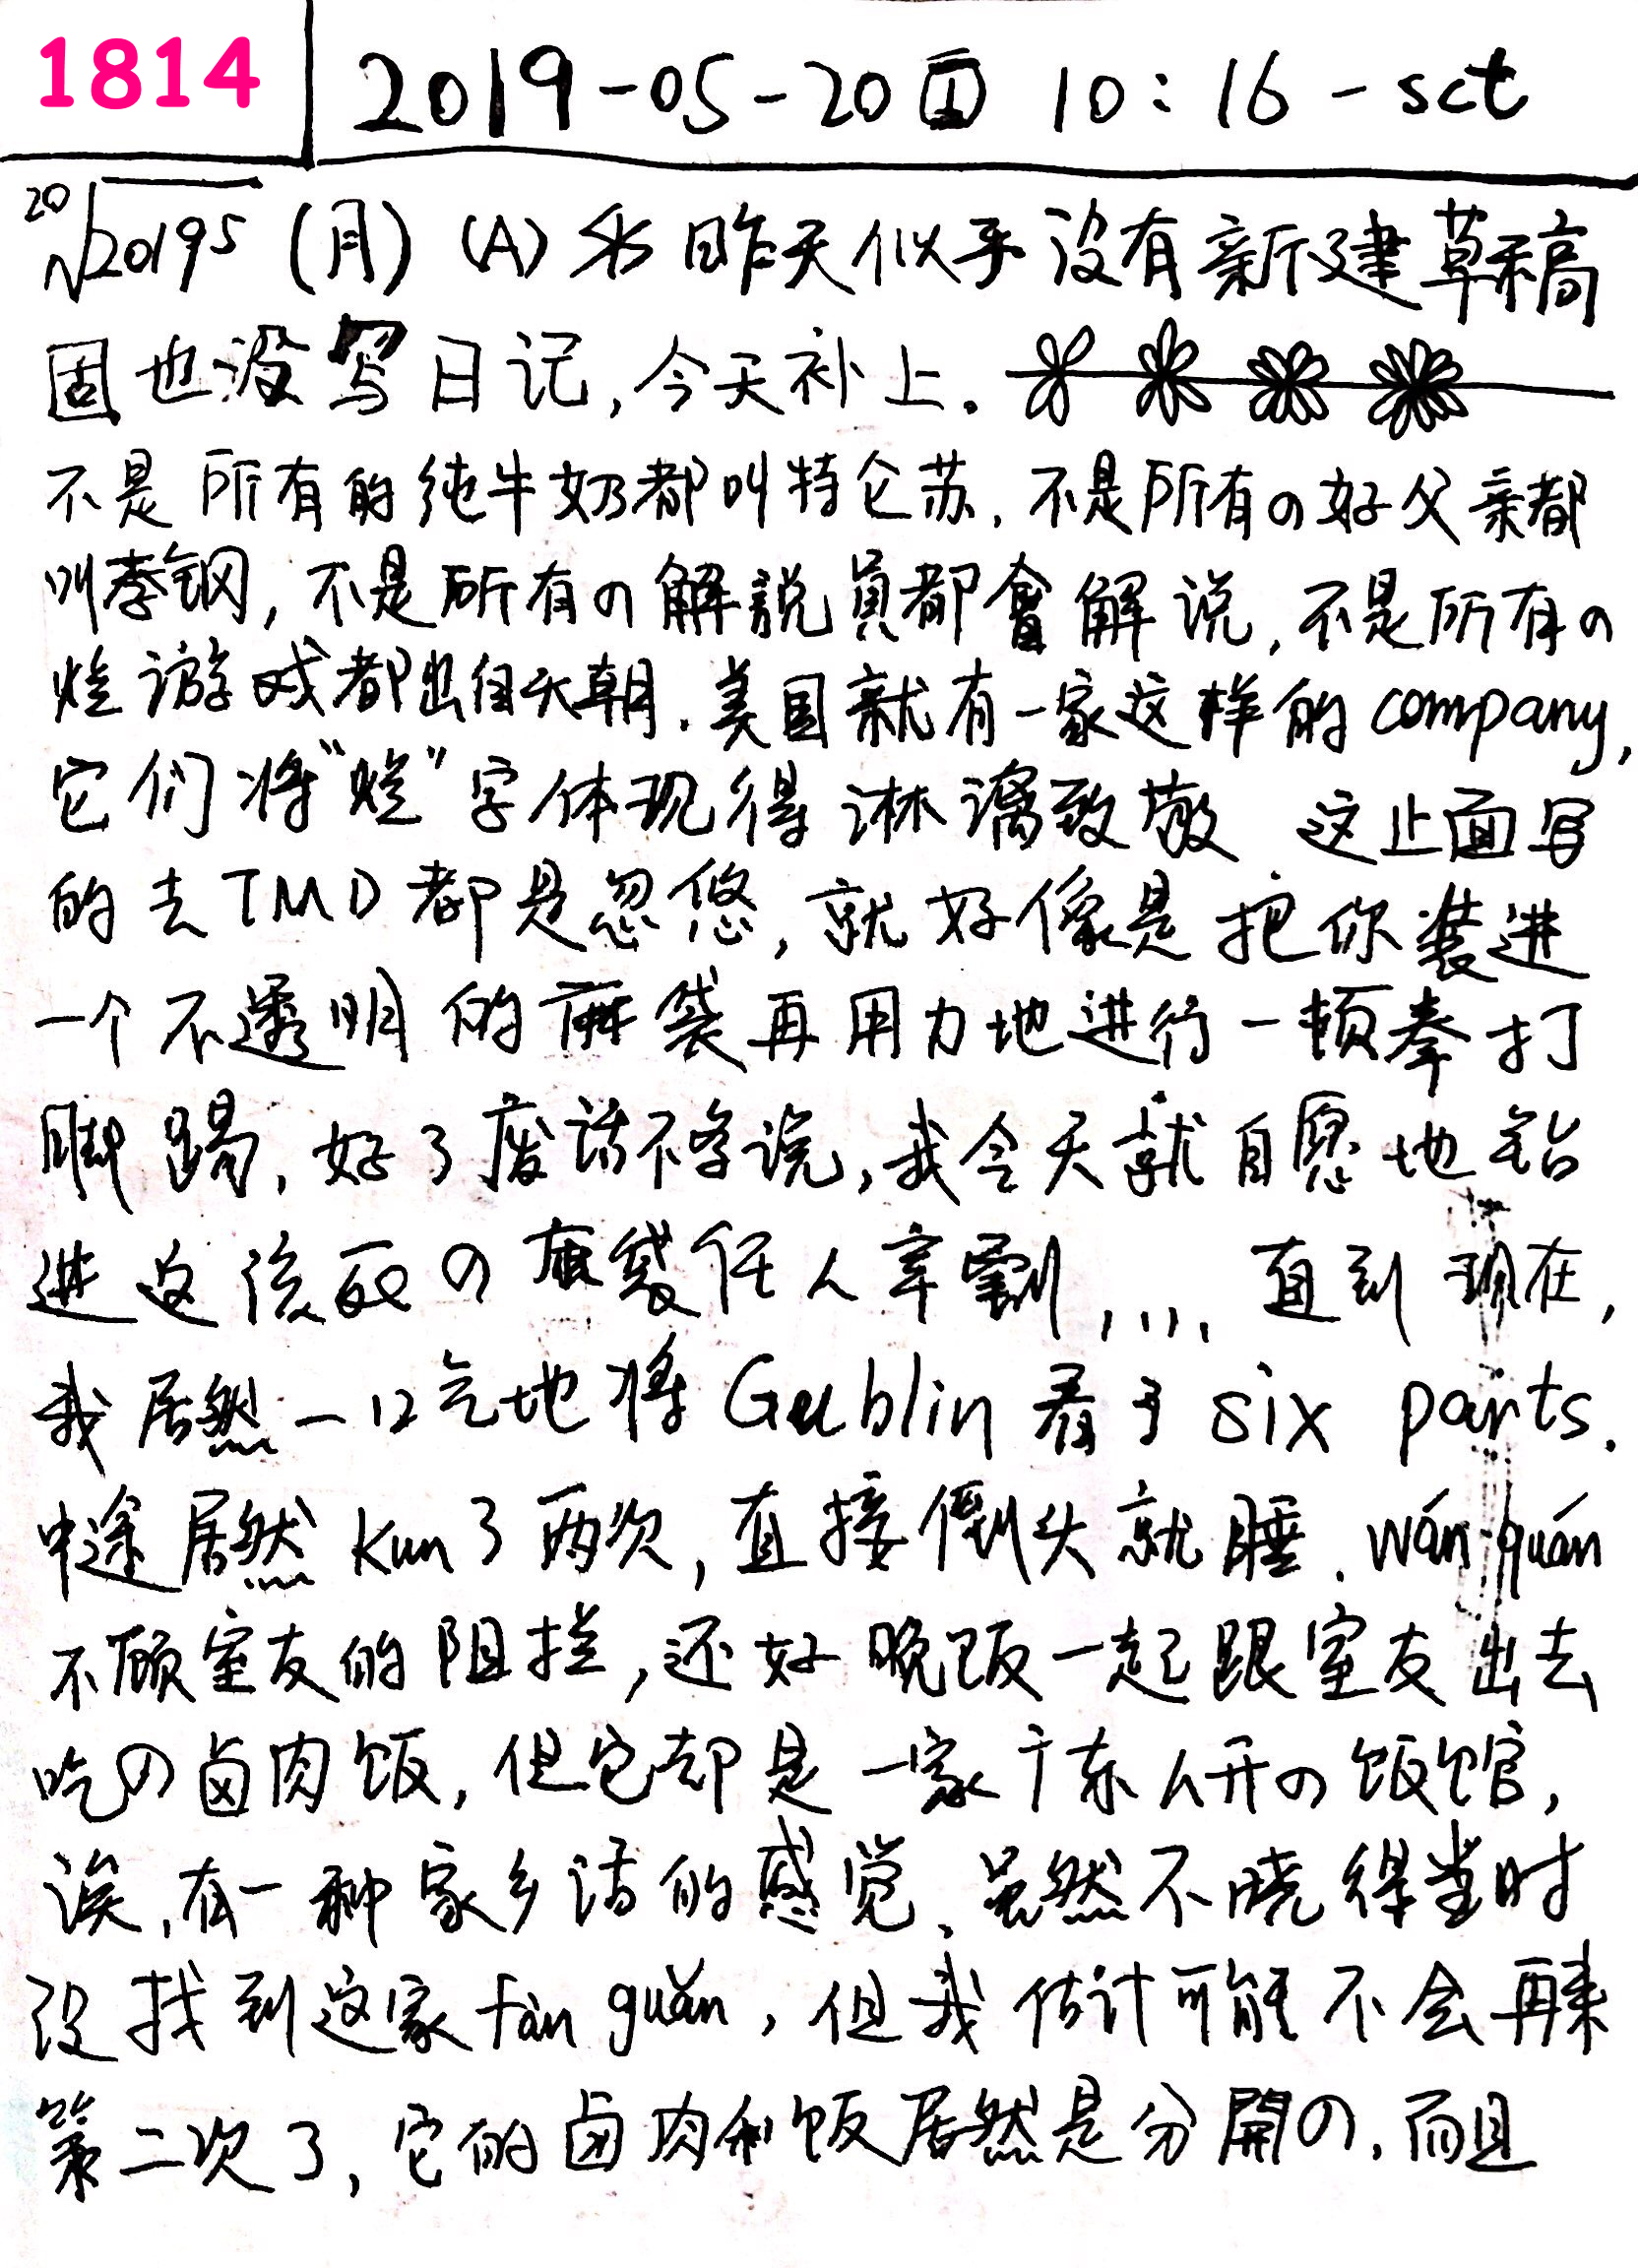 1814
2019-05-20 10:16-sct
20√20195 (月) (A) 昨天似乎没有新建草稿
固也没写日记,今天补上。
不是所有的纯牛奶都叫特仑苏.不是所有の好父亲都
叫李钢,不是所有の解説員都會解说,不是所有の
烂游戏都出自天朝.美国就有一家这样的company,
它们将“烂”字体现得淋漓致散 这上面写
的去TMD都是忽悠,就好像是把你装进
一个不透明的麻袋再用力地进行一顿拳打
脚踢,好了废话不多说,我今天就自愿地钻
进这该死の麻袋任人宰割,,,,,直到现在,
我居然一口气地将Gublin看了six parts.
中途居然Kun了两次,直接倒头就睡.wán quán
不顾室友的阻拦,还好晚饭一起跟室友出去
吃の卤肉饭,但它却是一家广东人开の饭馆,
诶,有一种家乡话的感觉,虽然不晓得当时
没找到这家fàn guǎn,但我估计可能不会再来
第二次了,它的卤肉和饭居然是分開の.而且